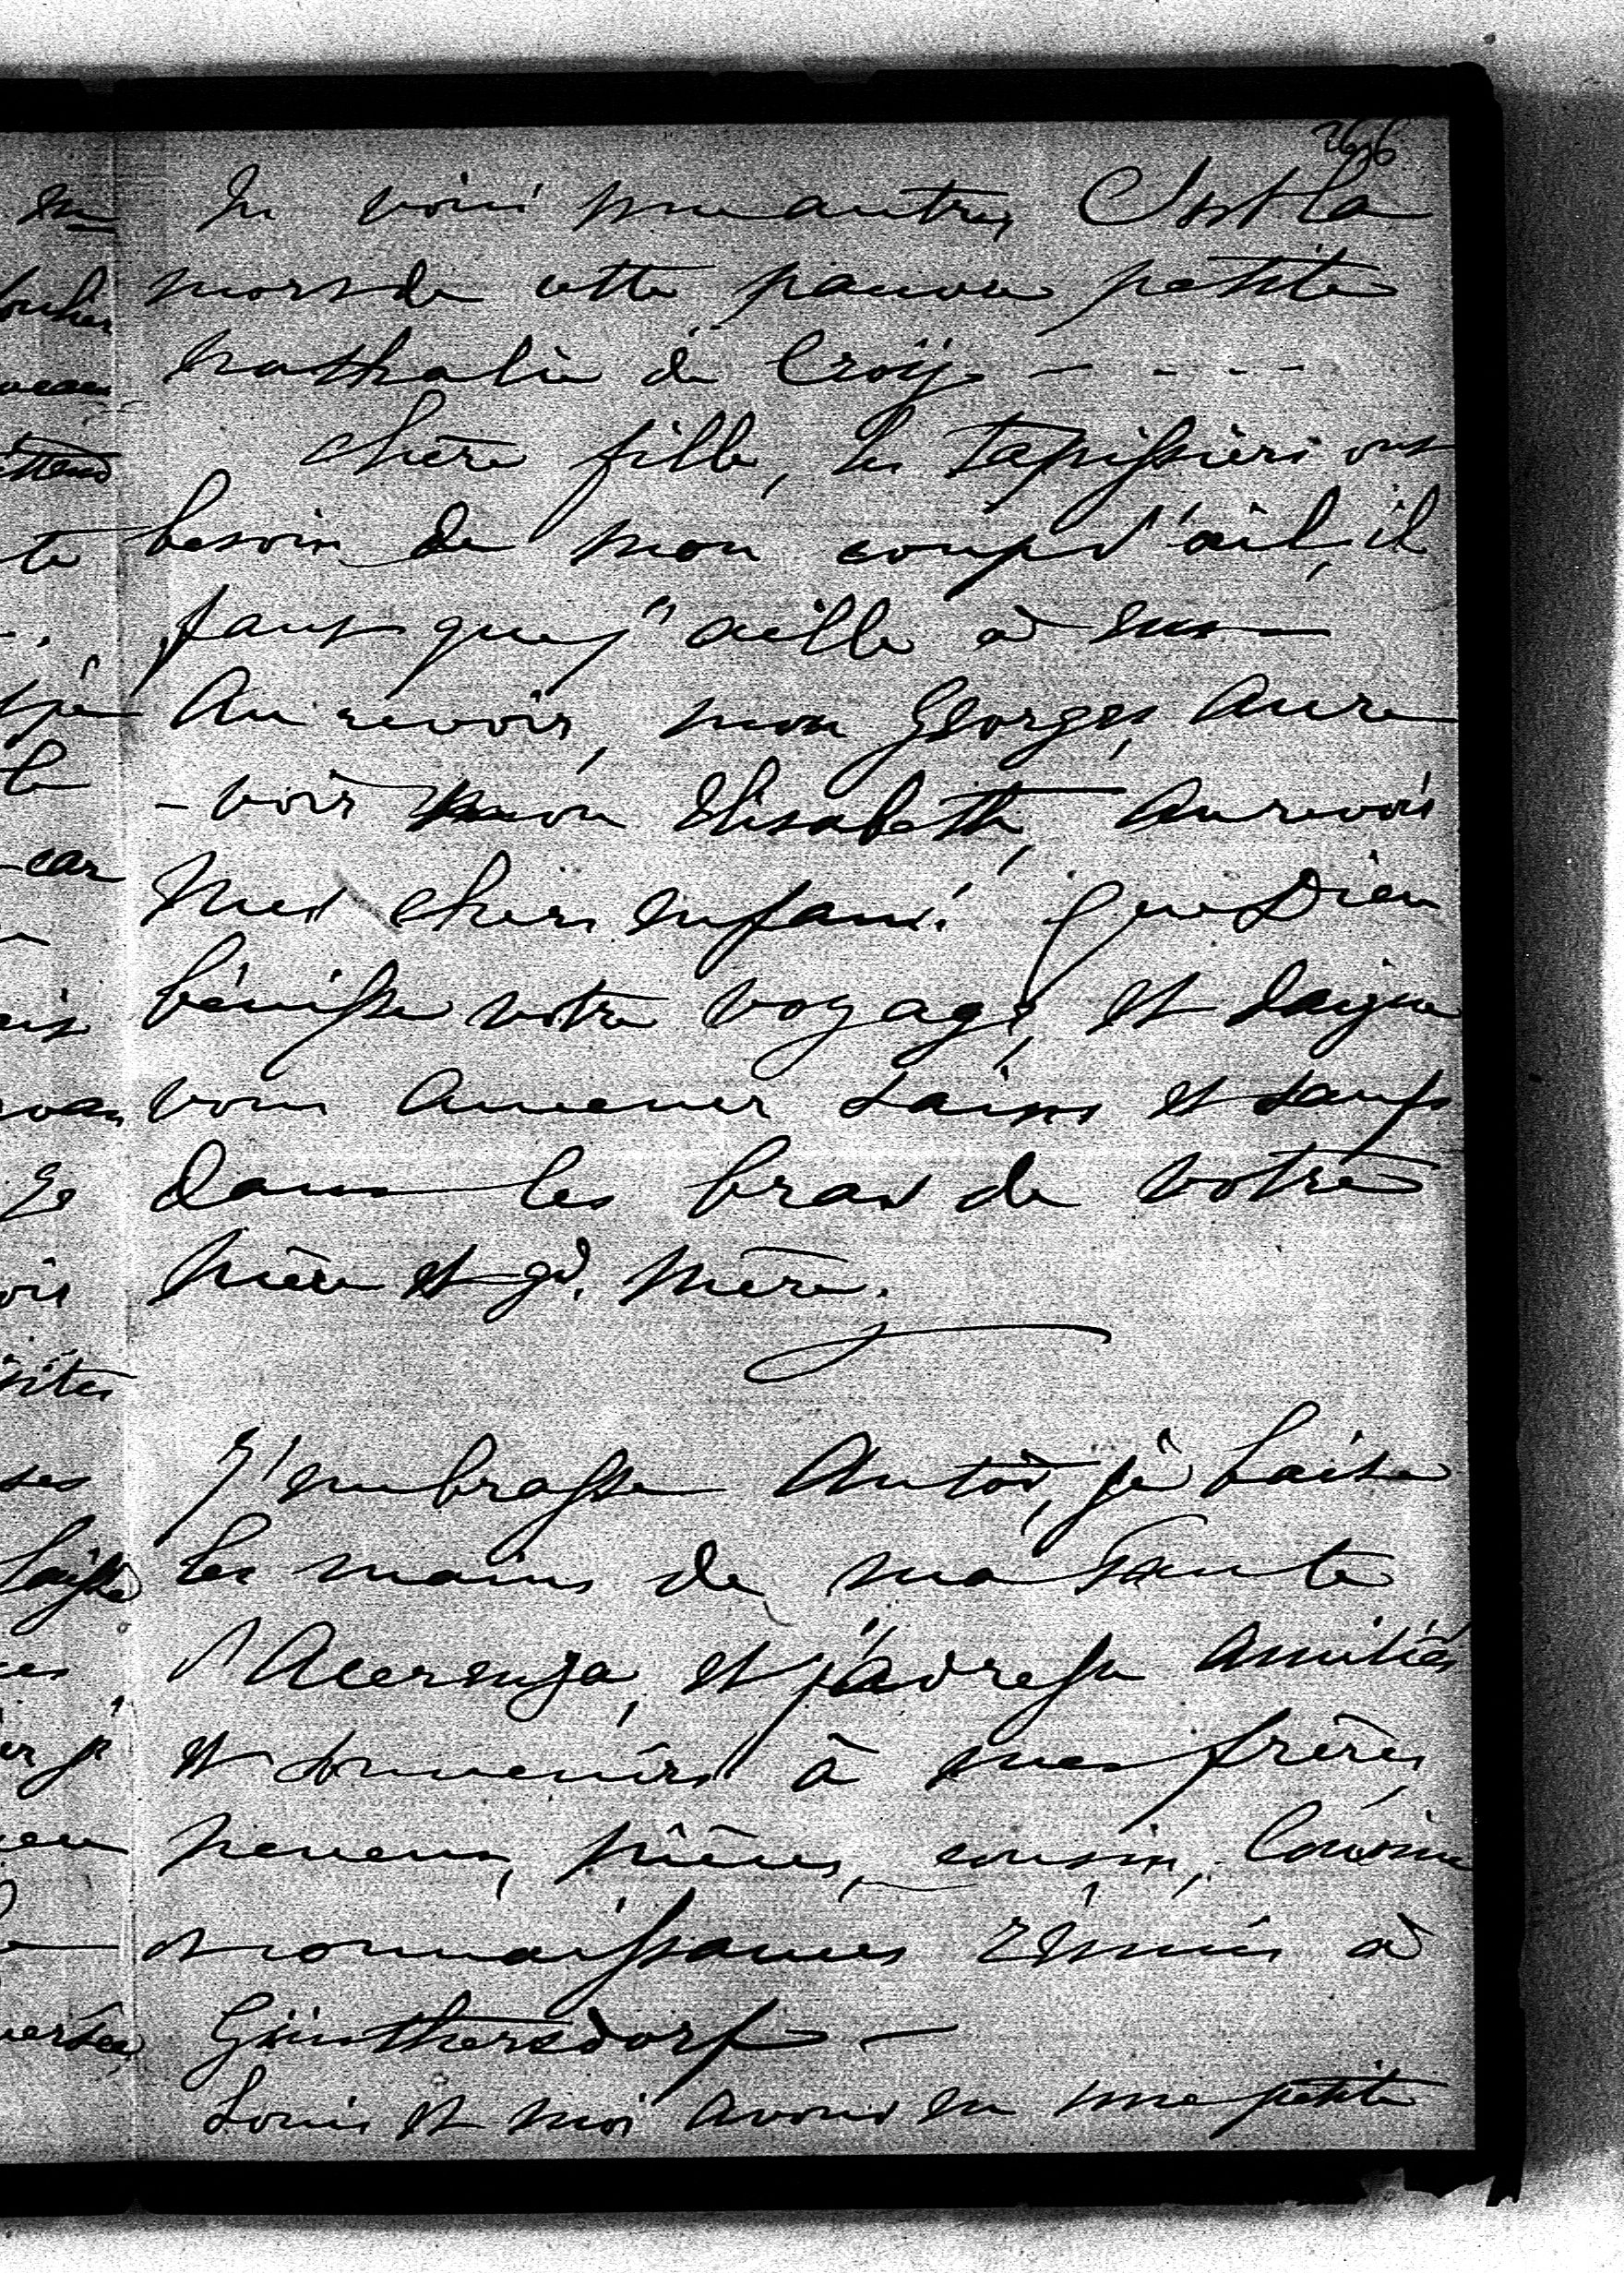 266
En voici une autre, C'est la
mort de cette pauvre petite
Nathalie de Croÿ - - - -
Chère fille, les tapissiers ont
besoin de mon coup d'œil, il
faut que j'aille à eux —
Au revoir, mon Georges, au re
-voir mon Elisabeth, au revoir
mes chers enfans! Que Dieu
bénisse votre voyage, et daigne
vous amener sains et saufs
dans les bras de votre
Mère et gd. Mère.
J'embrasse Antod, je baise
les mains de ma Tante
d'Acerenza, et j'adresse amitiés
et souvenirs à mes frères,
neveux, nièces, cousin, Cousine
et connaissances réunis à
Günthersdorf —
Louis et moi avons eu une petite